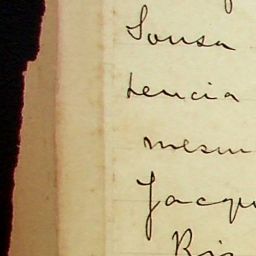 Sousa
tencia
mesm
Jacqu
Ris